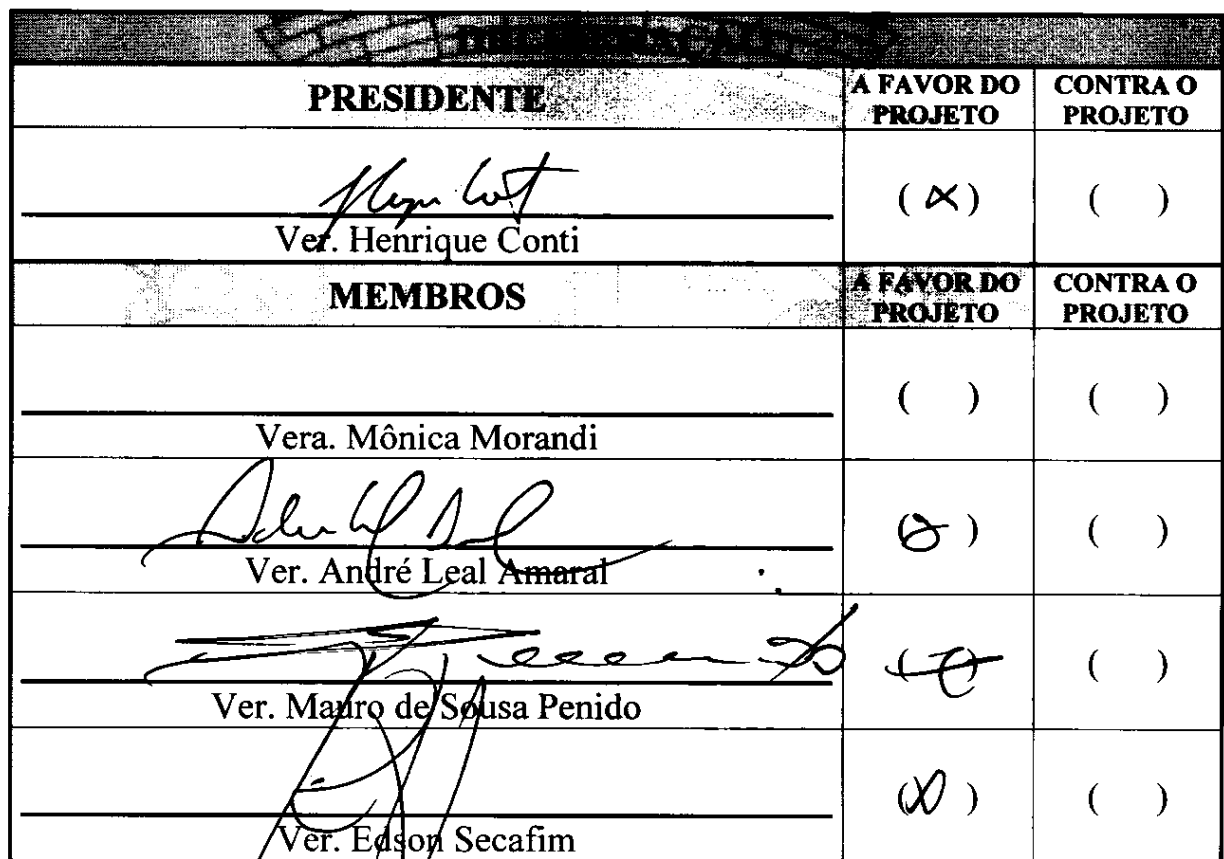 DELIBERAÇÃO
PRESIDENTE
A FAVOR DO PROJETO
CONTRA O PROJETO
( X )
(   )
Ver. Henrique Conti
MEMBROS
A FAVOR DO PROJETO
CONTRA O PROJETO
(   )
(   )
Vera. Mônica Morandi
(   )
Ver. André Leal Amaral
(   )
Ver. Mauro de Sousa Penido
( X )
(   )
Ver. Edson Secafim